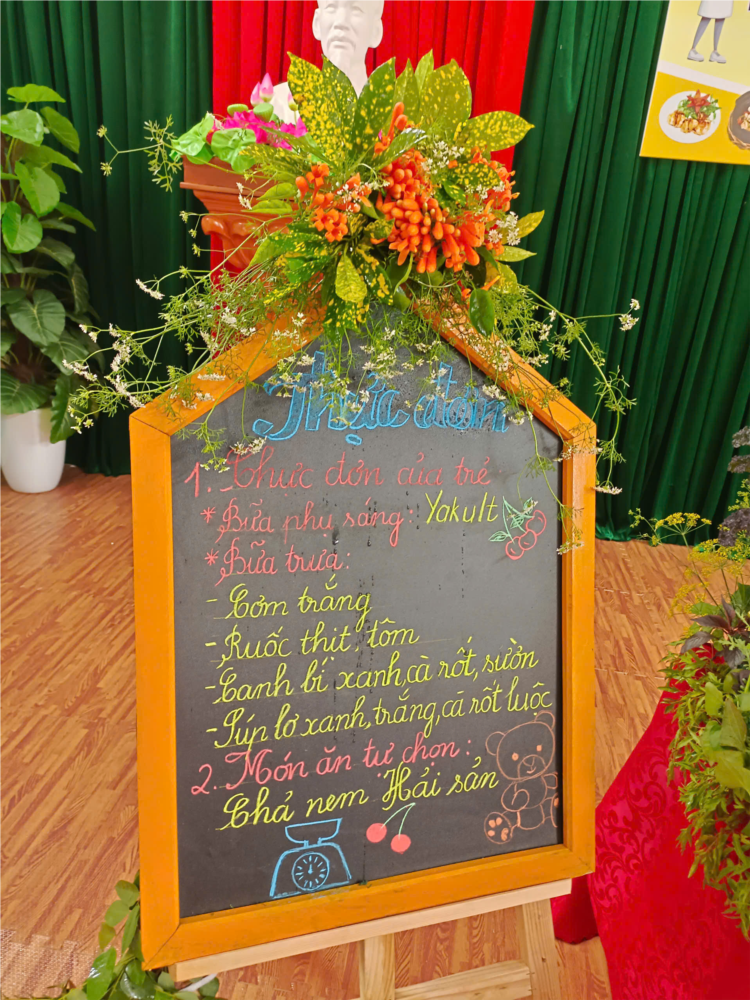 Thực đơn
1. Thực đơn của trẻ
* Bữa phụ sáng: Yakult
* Bữa trưa:
- Cơm trắng
- Ruốc thịt, tôm
- Canh bí xanh, cà rốt, sườn
- Súp lơ xanh, trắng, cà rốt luộc
2. Món ăn tự chọn:
Chả nem Hải sản